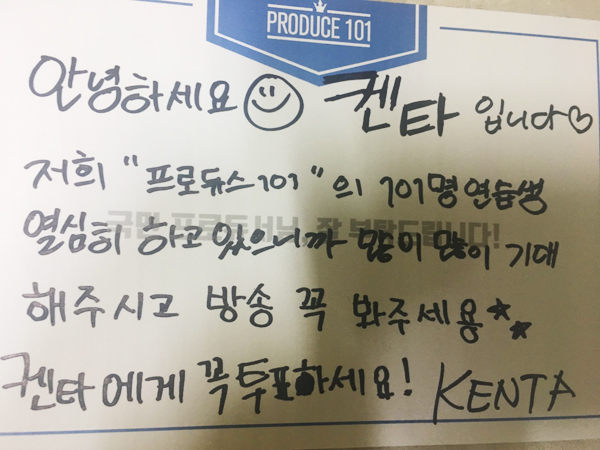 PRODUCE 101
안녕하세요 켄타 입니다♡
저희 "프로듀스101"의 101명 연습생
국민 프로듀서님, 잘 부탁드립니다!
열심히 하고 있으니까 많이 많이 기대
해주시고 방송 꼭 봐주세용**
켄타에게 꼭 투표하세요! KENTA